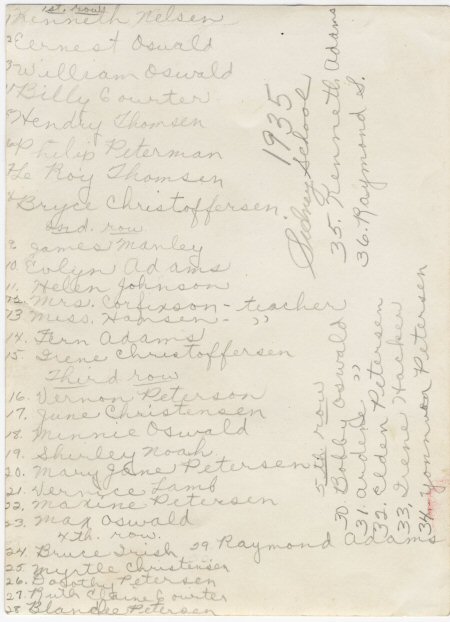 1st. row
1 Kenneth Nelsen
2 Eernest Oswald
3 William Oswald
4 Billy Courter
5 Hendry Thomsen
6 Philip Peterman
7 Le Roy Thomsen
8 Bryce Christoffersen
2nd. row
9. James Manley
10. Evlyn Adams
11. Helen Johnson
12. Mrs. Corfixson - teacher
13 Miss. Hansen - "
14. Fern Adams
15. Irene Christoffersen
Third row
16. Vernon Peterson
17. June Christensen
18. Minnie Oswald
19. Shirley Noah
20. Mary Jane Petersen
21. Vernice Lamb
22. Maxine Petersen
23. Max Oswald
4th. row.
24. Bruce Irish 29 Raymond Adams
25. Myrtle Christensen
26. Dorothy Petersen
27. Ruth Elaine Courter
28 Blandee Petersen
5th row
30 Bobby Oswald
31. Ardene "
32. Elden Petersen
33. Irene Hacker
34. Petersen
1935
Sidney School
35. Kenneth Adams
36. Raymond S.